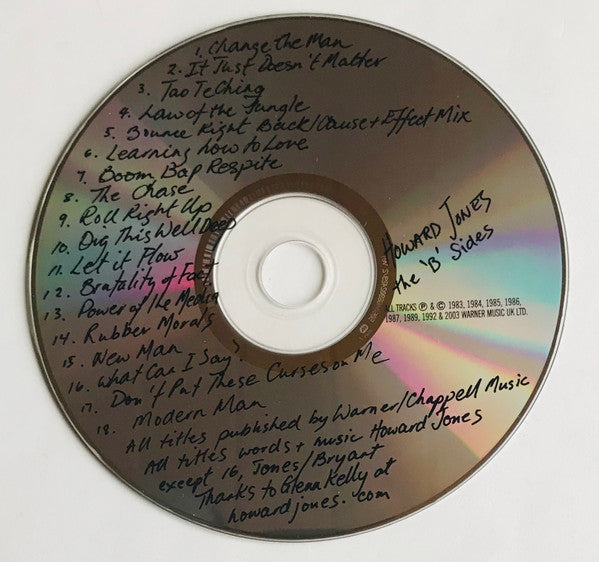 1. Change the Man
2. It Just Doesn't Matter
3. Tao Te Ching
4. Law of the Jungle
5. Bounce Right Back/Cause + Effect Mix
6. Learning how to Love
7. Boom Bap Respite
8. The Chase
9. Roll Right Up
10. Dig This Well Deep
11. Let it Flow
12. Brutality of Fact
13. Power of the Media
14. Rubber Morals
15. New Man
16. What Can I Say?
17. Don't Put These Curses on Me
18. Modern Man
All titles published by Warner/Chappell Music
All titles words + music Howard Jones
except 16, Jones/Bryant
Thanks to Glenn Kelly at
howardjones.com
HOWARD JONES
the 'B' Sides
ALL TRACKS ℗ & © 1983, 1984, 1985, 1986,
1987, 1989, 1992 & 2003 WARNER MUSIC UK LTD.